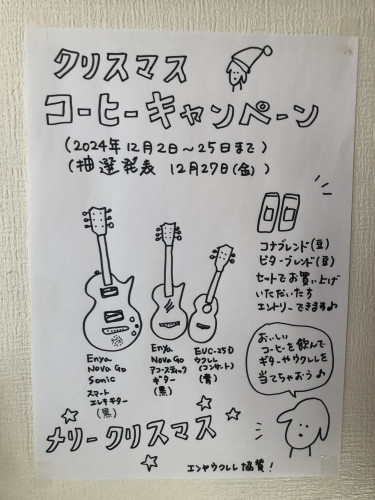 クリスマス
コーヒーキャンペーン
(2024年12月2日〜25日まで)
(抽選発表 12月27日(金))
コナブレンド(豆)
ビターブレンド(豆)
セットでお買い上げ
いただいたら
エントリーできます♪
Enya
Nova Go
Sonic
スマート
エレキギター
(黒)
Enya
Nova Go
アコースティック
ギター
(黒)
EUC-25D
ウクレレ
(コンサート)
(青)
おいしい
コーヒーを飲んで
ギターやウクレレを
当てちゃおう♪
メリークリスマス
エンヤウクレレ協賛!